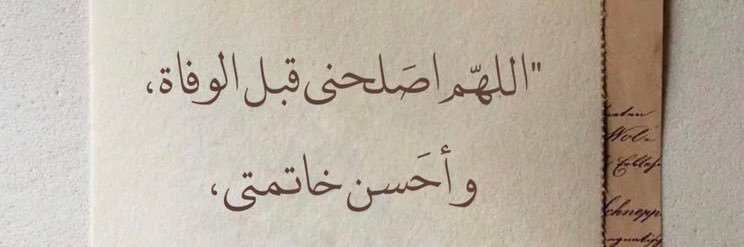 "اللهّم اصَلحنى قبل الوفاة،
وأحَسن خاتمتى،